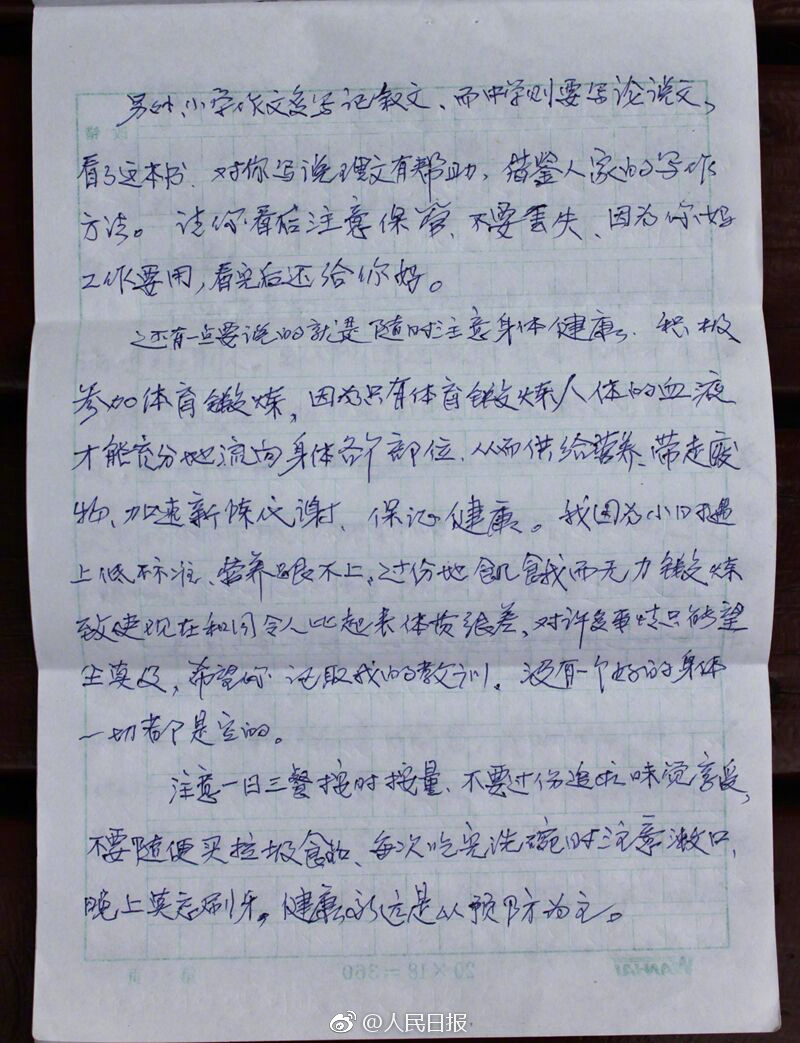 另外,小学作文多写记叙文、而中学则要写论说文,
看了这本书、对你写说理文有帮助,借鉴人家的写作
方法。请你看后注意保管、不要丢失、因为你妈
工作要用,看完后还给你妈。
还有一点要说的就是随时注意身体健康、积极
参加体育锻炼,因为只有体育锻炼人体的血液
才能充分地流向身体各个部位、从而供给营养、带走废
物、加速新陈代谢、保证健康。我因为小时遇
上低标准、营养跟不上、过份地饥饿而无力锻炼
致使现在和同令人比起来体质很差、对许多事情只能望
尘莫及,希望你记取我的教训。没有一个好的身体
一切都是空的。
注意一日三餐按时按量、不要过份追求味觉享受,
不要随便买垃圾食物、每次吃完洗碗时注意漱口,
晚上莫忘刷牙。健康永远是以预防为主。
20×18=360
@人民日报